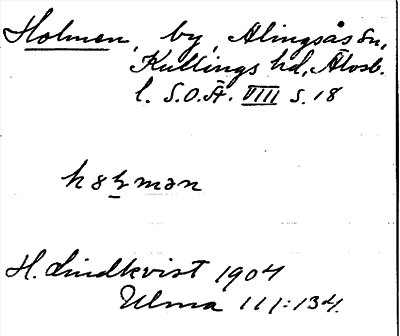 Holmen, by, Alingsås sn,
Kullings hd, Älvsb.
l. S.O.Ä. VIII s. 18
H. Lindkvist 1904
Ulma 111:134.